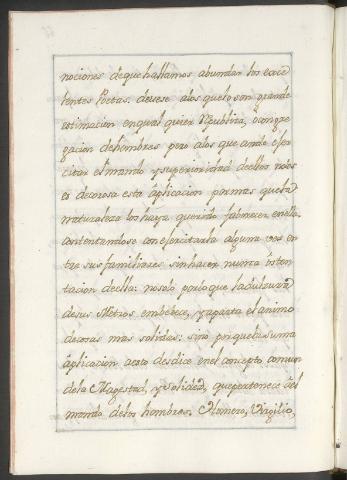 nociones deque hallamos abundar los exce
lentes Poetas. devese alos quelo son grande
estimacion enqual quier Republica, ò congre
gacion dehombres pero alos que an de exer
citar el mando y superioridad dellos no les
es decorosa esta aplicacion por mas que la
naturaleza los haya querido faborecer enella.
contentandose con exercitarla alguna vez en
tre sus familiares sin hacer nunca osten
tacion de ella: no solo por lo que la dulzura
de sus Metros embebece, y aparta el animo
de cosas mas solidas: sino porque la suma
aplicacion a esto desdice en el concepto comun
dela Magestad, y solidez, que pertenece al
mando delos hombres. Homero, Virgilio,